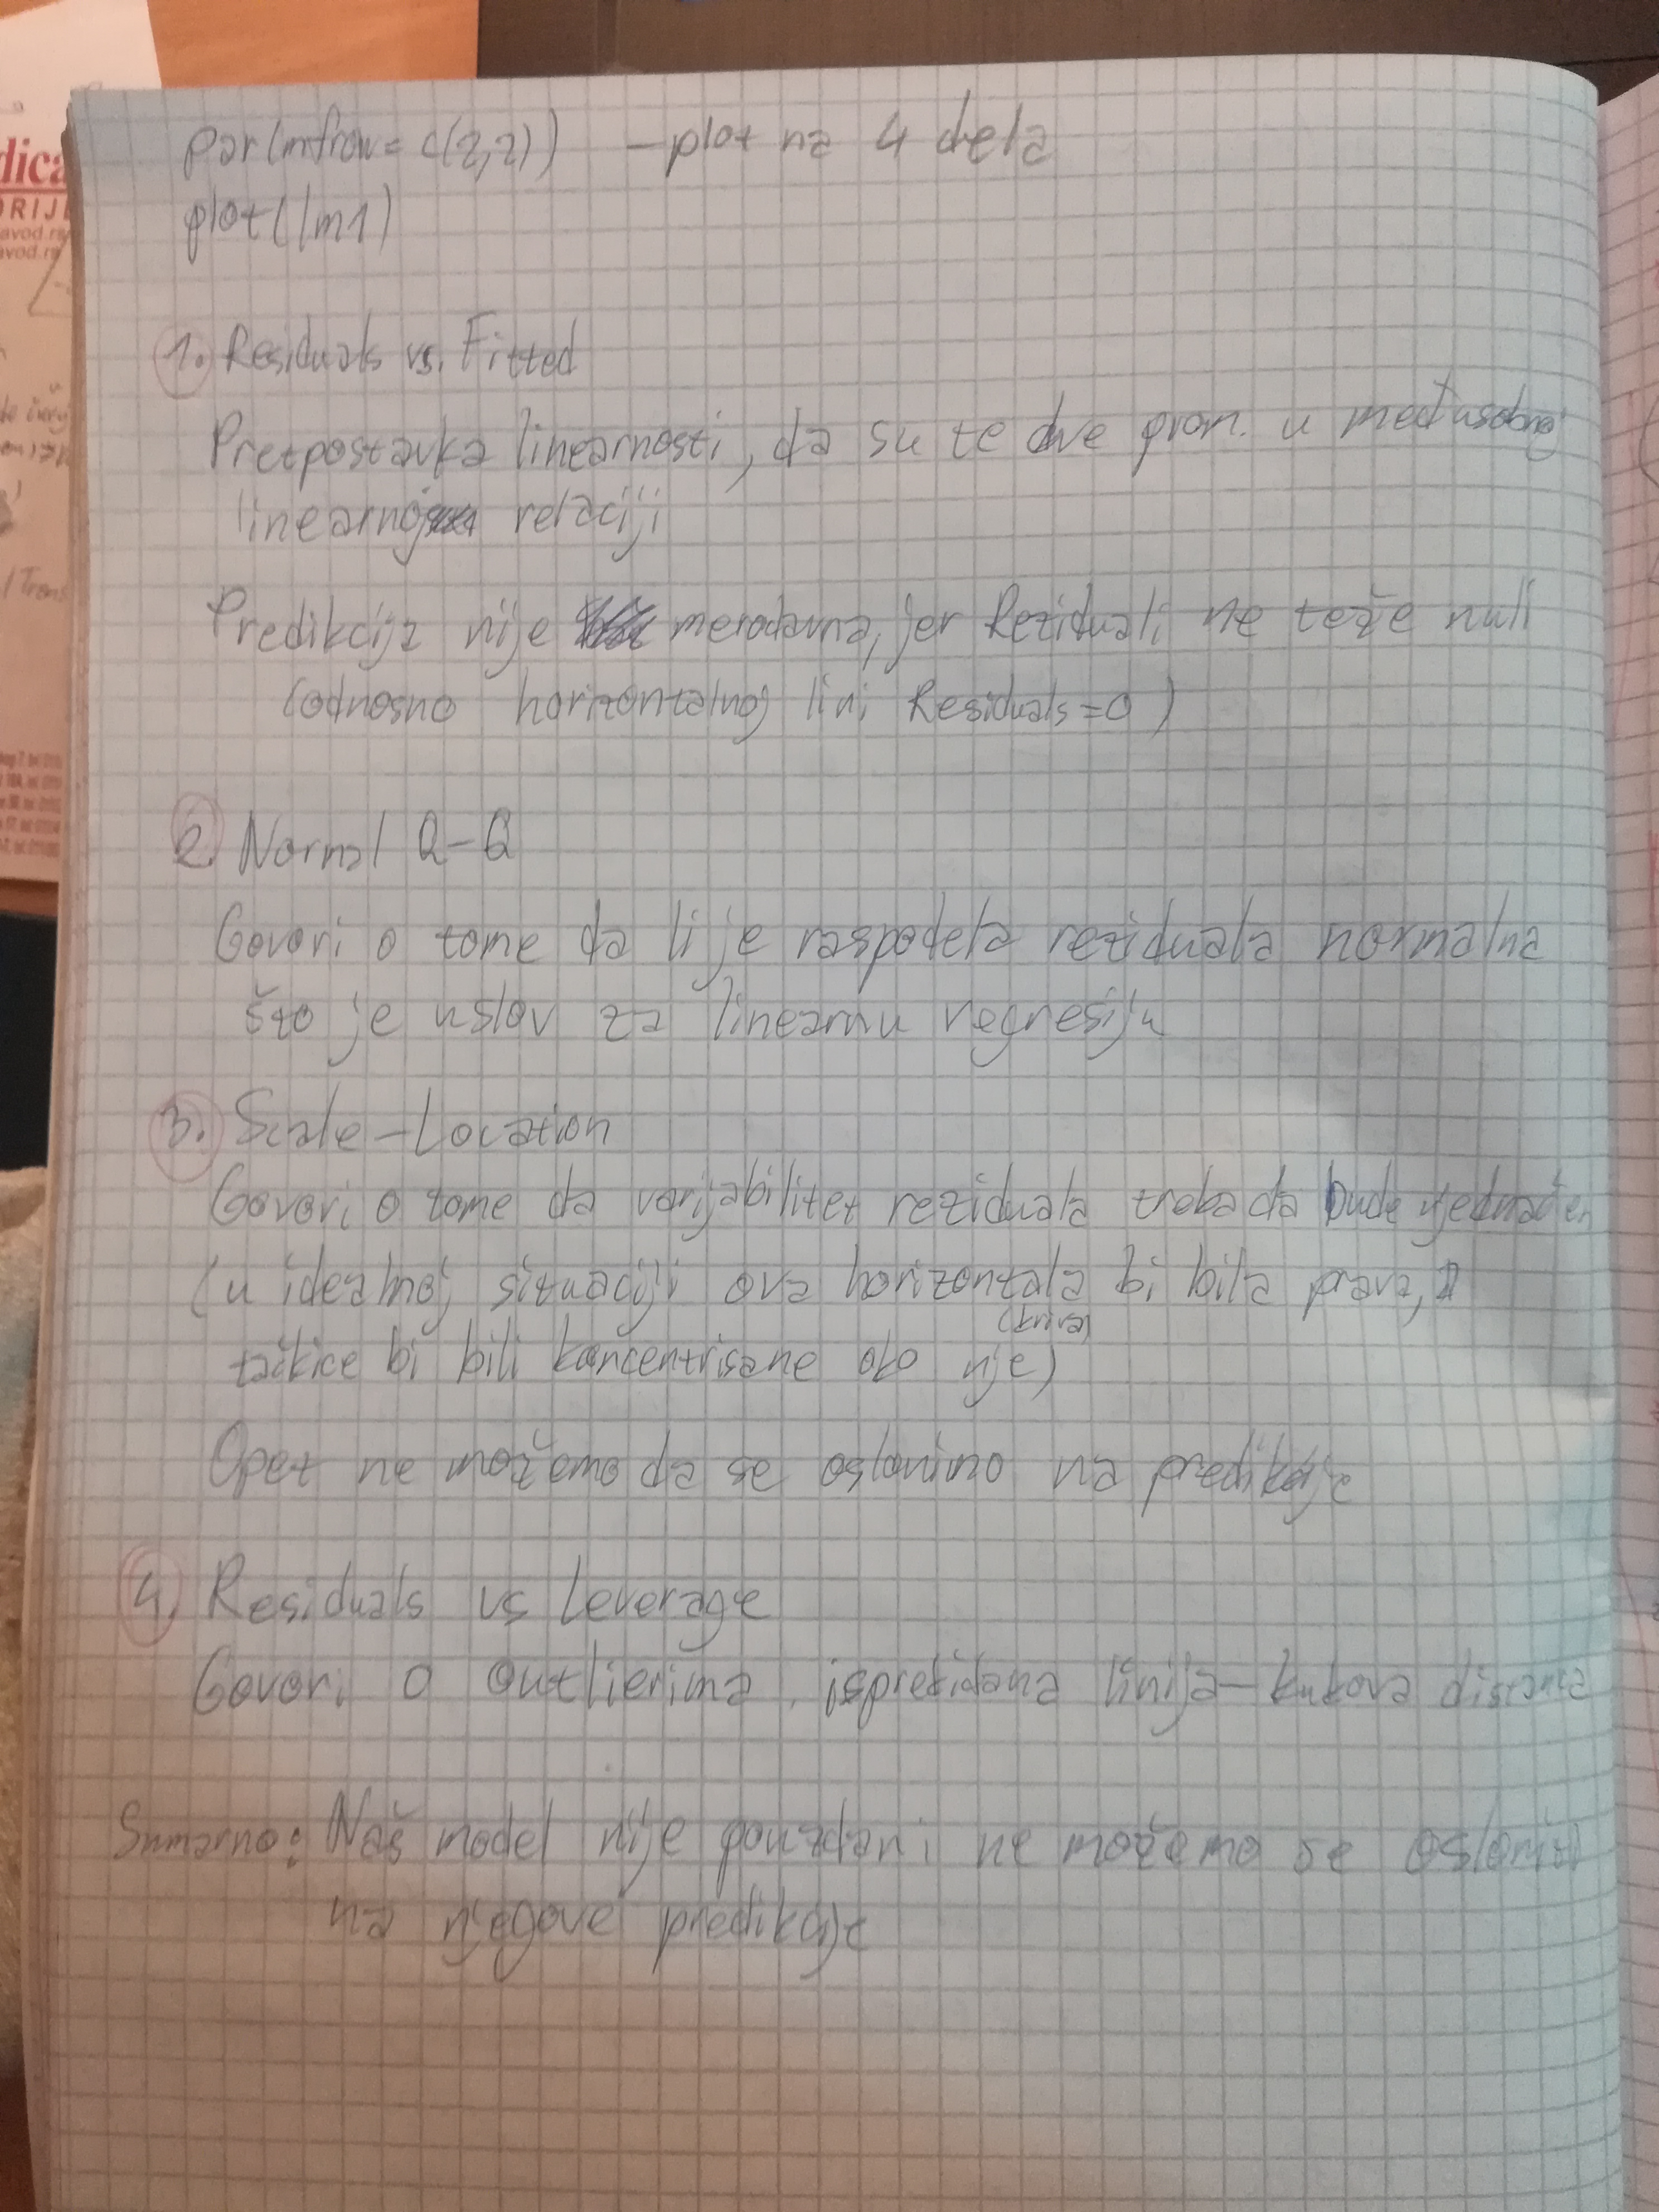 par(mfrow = c(2,2)) – plot na 4 dela
plot(lm1)
1. Residuals vs. Fitted
Pretpostavka linearnosti, da su te dve prom. u međusobno
linearnoj relaciji
Predikcija nije merodavna, jer Reziduali ne teže nuli
(odnosno horizontalnoj lini Residuals=0)
2. Normal Q-Q
Govori o tome da li je raspodela reziduala normalna
što je uslov za linearnu regresiju
3. Scale-Location
Govori o tome da varijabilitet reziduala treba da bude ujednačen
(u idealnoj situaciji ova horizontala bi bila prava, a
(kriva)
tačkice bi bili koncentrisane oko nje)
Opet ne možemo da se oslonimo na predikcije
4. Residuals vs Leverage
Govori o outlierima, isprekidana linija – kukova distanca
Sumarno: Naš model nije pouzdan i ne možemo se osloniti
na njegove predikcije
dica
ORIJ
avod.rs
avod.rs